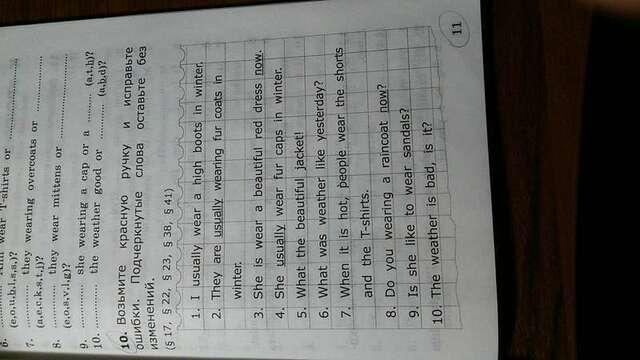 6. ............ Ann wear T-shirts or ......................
(e,o,u,b,l,s,s,)?
7. ............ they wearing overcoats or ................
(a,e,c,k,s,t,j)?
8. ............ they wear mittens or ......................
(e,o,s,v,l,g)?
9. ............ she wearing a cap or a ........ (a,t,h)?
10. ............ the weather good or .......... (a,b,d)?
10. Возьмите красную ручку и исправьте
ошибки. Подчеркнутые слова оставьте без
изменений.
(§ 17, § 22, § 23, § 38, § 41)
1. I usually wear a high boots in winter.
2. They are usually wearing fur coats in
winter.
3. She is wear a beautiful red dress now.
4. She usually wear fur caps in winter.
5. What the beautiful jacket!
6. What was weather like yesterday?
7. When it is hot, people wear the shorts
and the T-shirts.
8. Do you wearing a raincoat now?
9. Is she like to wear sandals?
10. The weather is bad, is it?
11